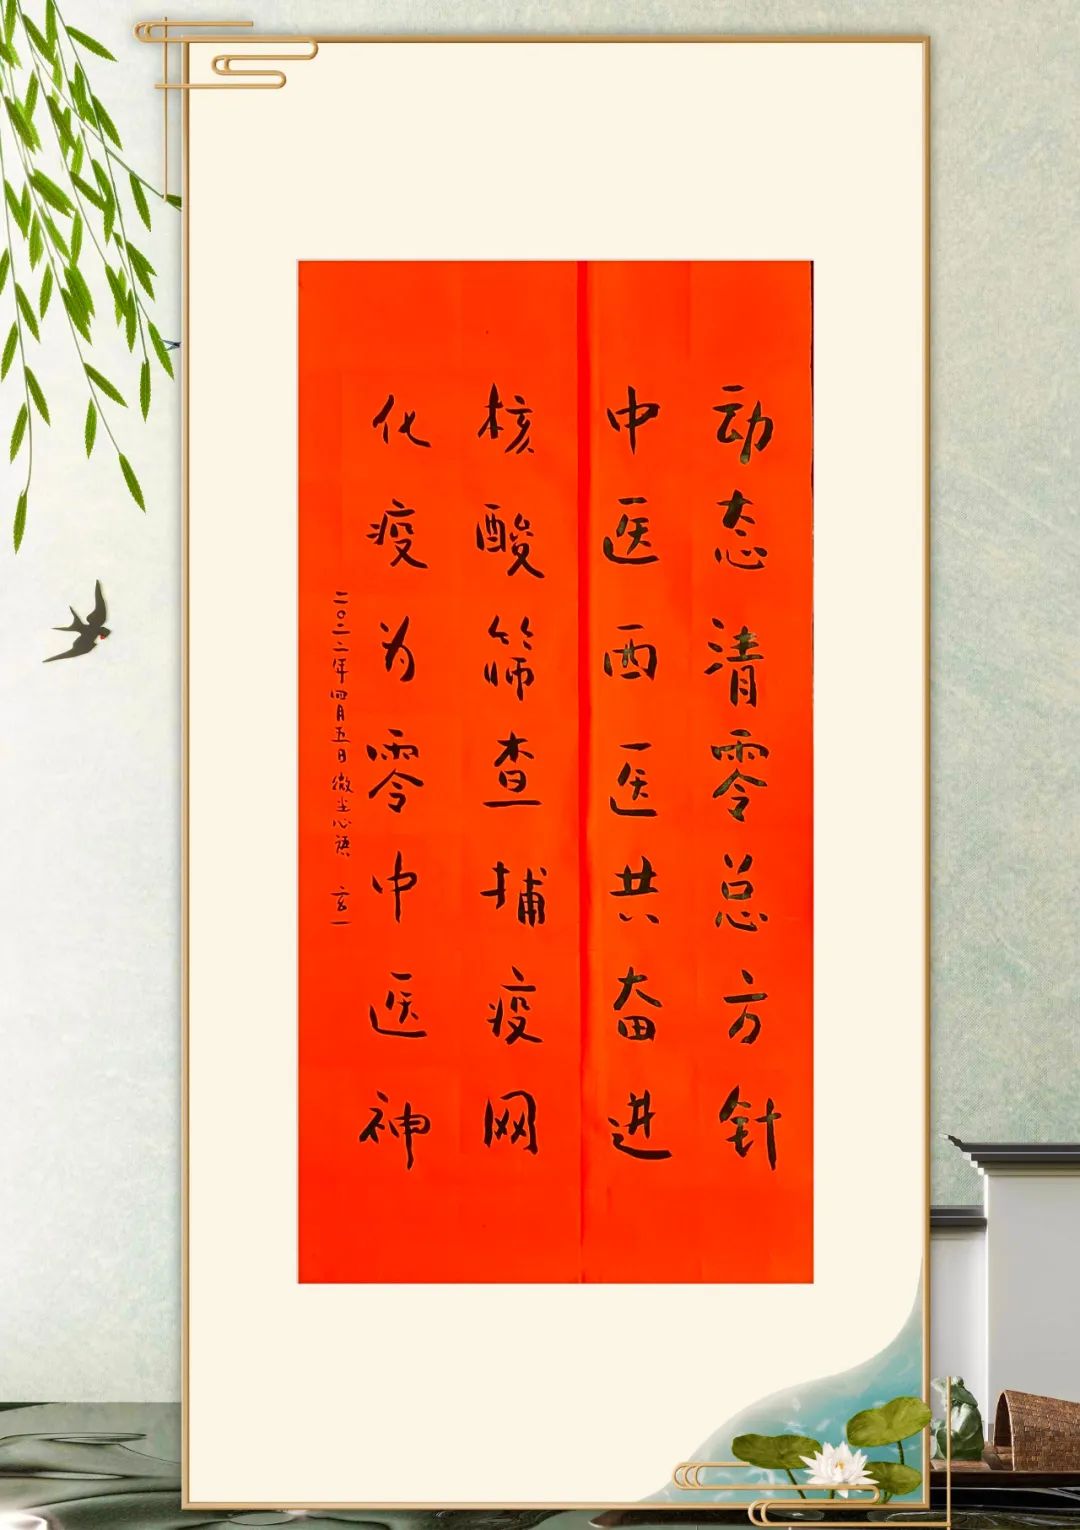 动态清零总方针
中医西医共奋进
核酸筛查捕疫网
化疫为零中医神
二〇二二年四月五日微尘心语 玄一